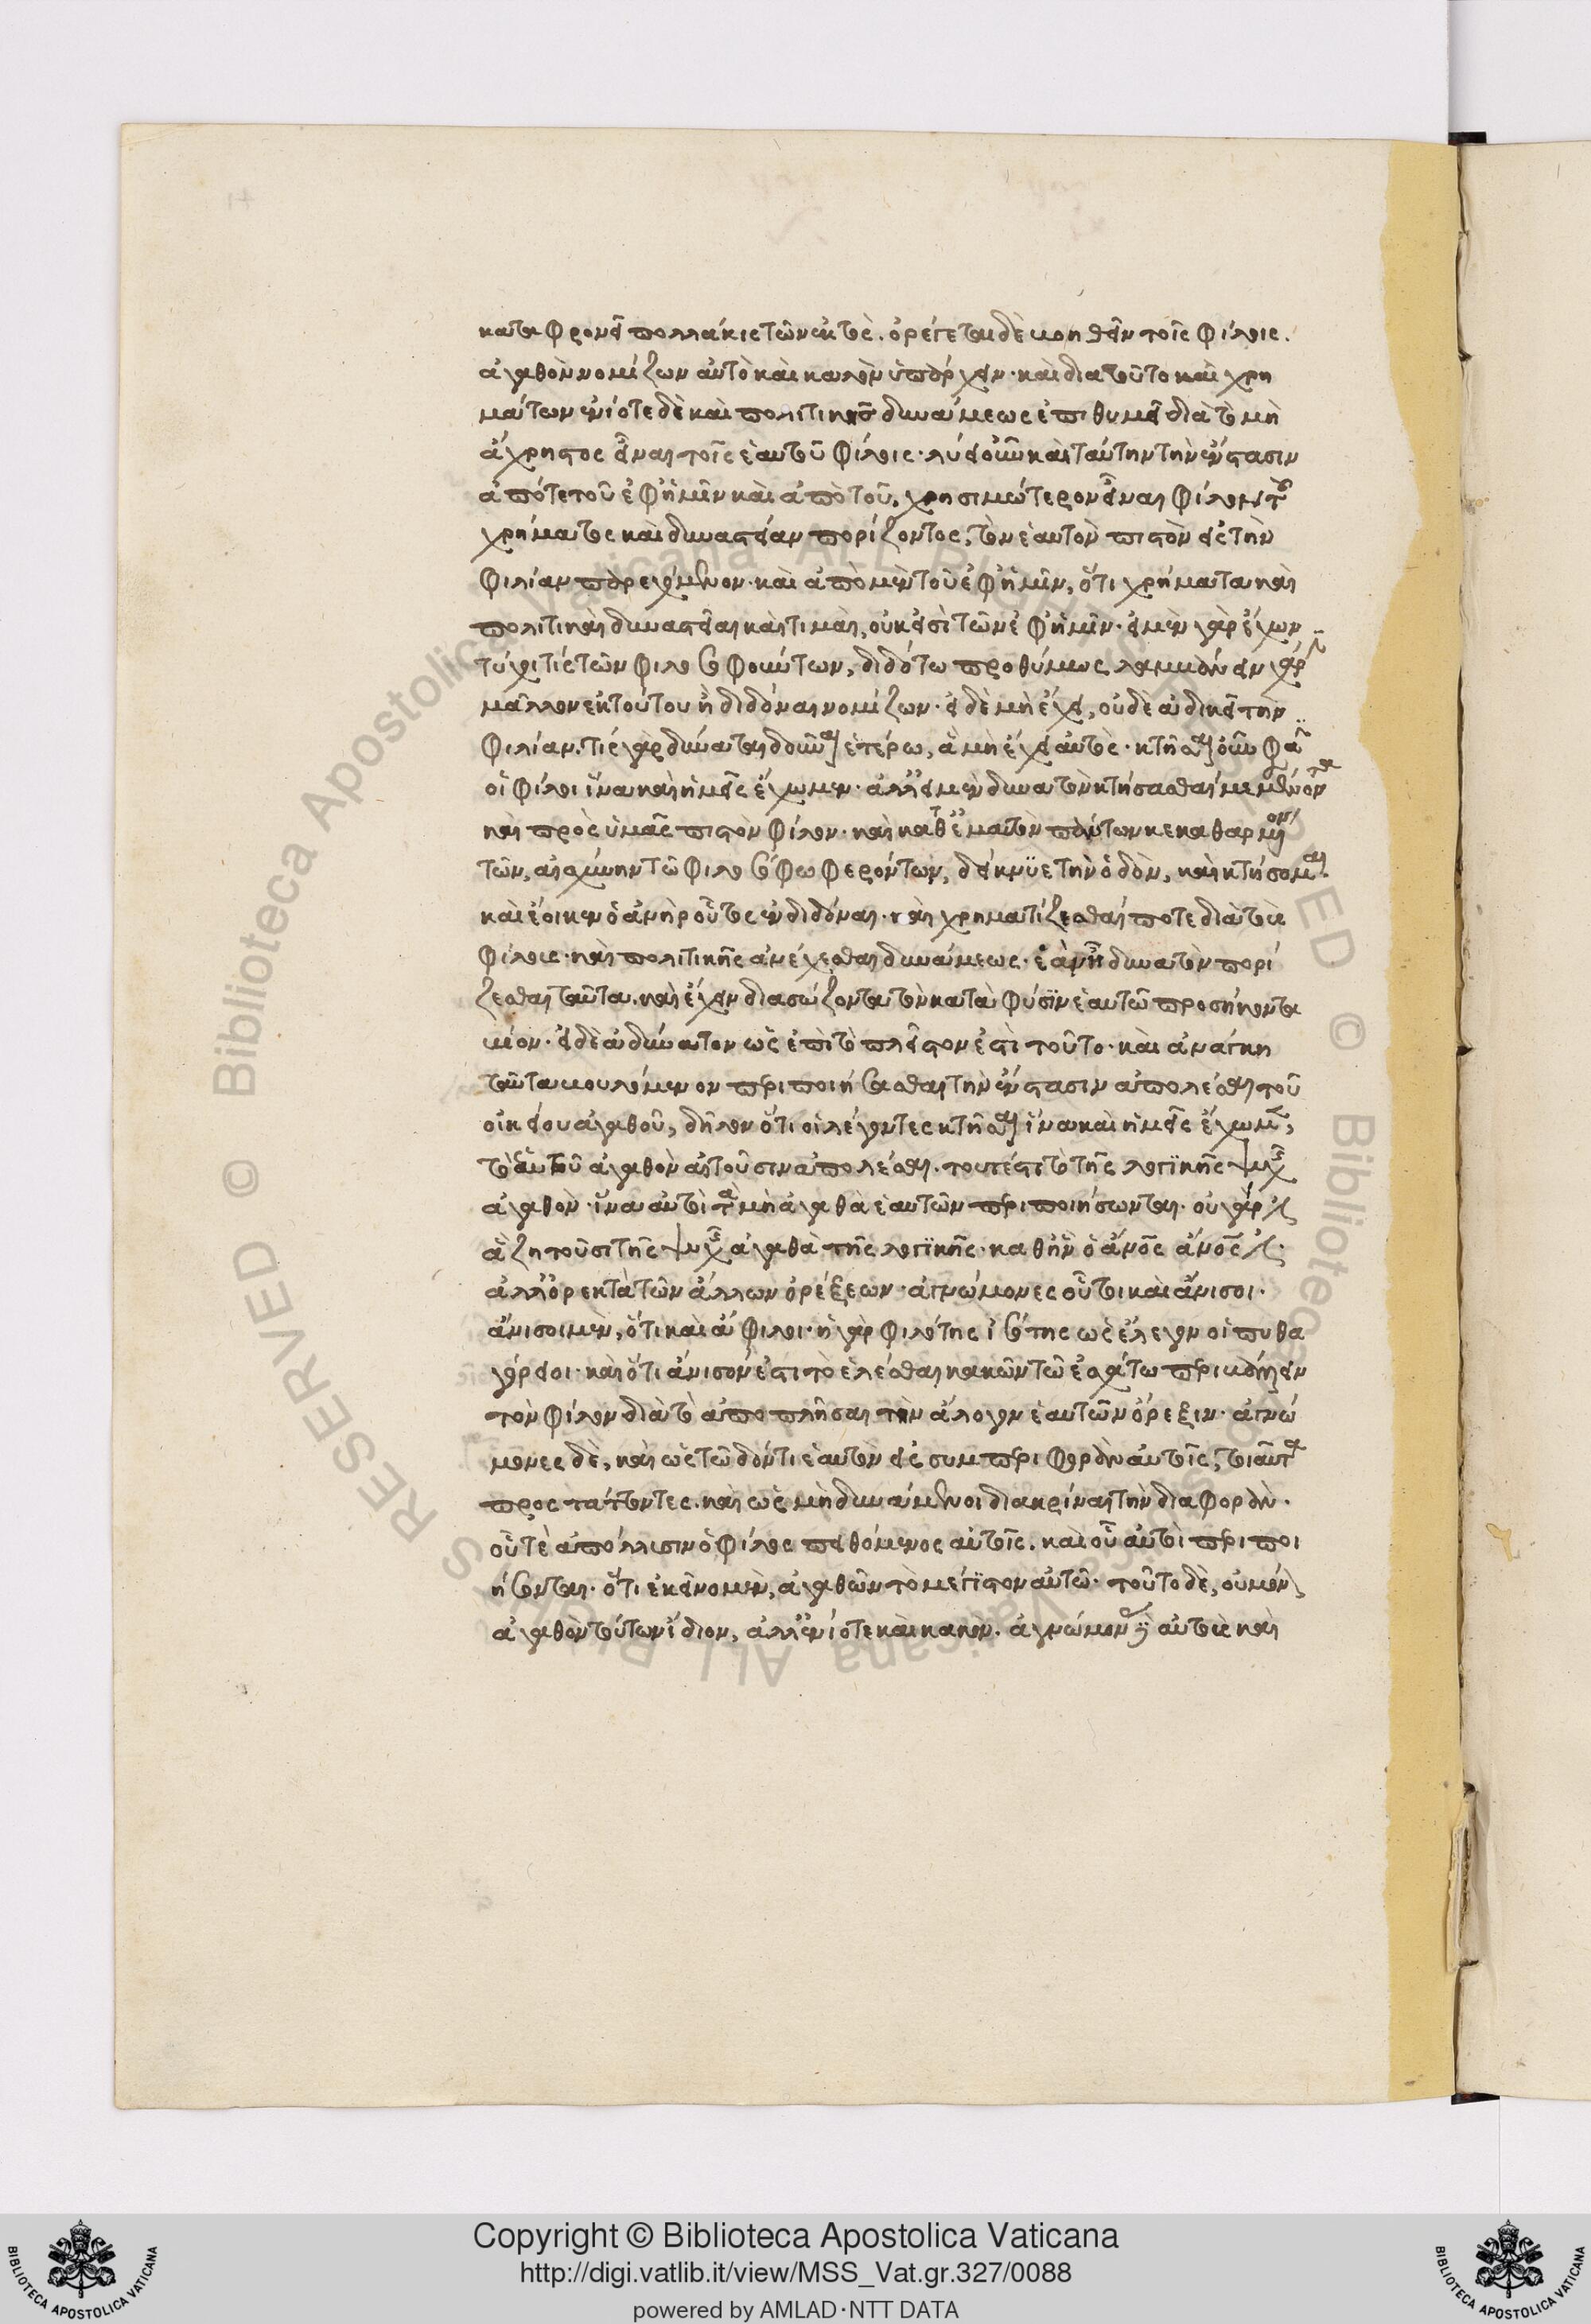 καταφρονεῖ πολλάκις τῶν ἐκτός. ὀρέγεται δὲ βοηθεῖν τοῖς φίλοις.
ἀγαθὸν νομίζων αὐτὸ καὶ καλὸν ὑπάρχειν. καὶ διατοῦτο καὶ χρη
μάτων ἐνίοτε δὲ καὶ πολιτικῆς δυνάμεως ἐπιθυμεῖ διὰ τὸ μὴ
ἄχρηστος εἶναι τοῖς ἑαυτοῦ φίλοις. λύει οὖν καὶ ταύτην τὴν ἔνστασιν
ἀπό τε τοῦ ἐφ' ἡμῖν καὶ ἀπὸ τοῦ, χρησιμώτερον εἶναι φίλον τοῦ
χρήματα καὶ δυναστείαν πορίζοντος, τὸν ἑαυτὸν πιστὸν εἰς τὴν
φιλίαν παρεχόμενον. καὶ ἀπὸ μὲν τοῦ ἐφ' ἡμῖν, ὅτι χρήματα καὶ
πολιτικαὶ δυναστεῖαι καὶ τιμαὶ, οὐκ εἰσὶ τῶν ἐφ' ἡμῖν. εἰ μὲν γὰρ ἔχων
τύχῃ τις τῶν φιλοσοφούντων, διδότω προθύμως λαμβάνειν γὰρ
μᾶλλον ἐκ τούτου ἢ διδόναι νομίζων. εἰ δὲ μὴ ἔχει, οὐδὲ ἀδικεῖ τὴν
φιλίαν. τίς γὰρ δύναται δοῦναι ἑτέρω, ἃ μὴ ἔχει αὐτός. κτῆσαι οὖν φασὶν
οἱ φίλοι ἵνα καὶ ἡμεῖς ἔχωμεν. ἀλλ' εἰ μὲν δυνατὸν κτήσασθαί με μένοντα
καὶ πρὸς ὑμᾶς πιστὸν φίλον. καὶ κατ' ἐμαυτὸν πάντων κεκαθαρμένον
τῶν, αἰσχύνην τῶ φιλοσόφω φερόντων, δείκνυε τὴν ὁδὸν, καὶ κτήσομαι.
καὶ ἔοικεν ὁ ἀνὴρ οὗτος ἐνδιδόναι. καὶ χρηματίζεσθαί ποτε διὰ τοὺς
φίλους. καὶ πολιτικῆς ἀνέχεσθαι δυνάμεως. ἐὰν ᾖ δυνατὸν πορί
ζεσθαι ταῦτα. καὶ ἔχειν διασώζοντα τὸν κατὰ φύσιν ἑαυτῶ προσήκοντα
βίον. εἰ δὲ ἀδύνατον ὡς ἐπὶ τὸ πλεῖστον ἐστὶ τοῦτο. καὶ ἀνάγκη
ταῦτα βουλόμενον περιποιήσασθαι τὴν ἔνστασιν ἀπολέσαι τοῦ
οἰκείου ἀγαθοῦ, δῆλον ὅτι οἱ λέγοντες κτῆσαι ἵνα καὶ ἡμεῖς ἔχωμεν,
τὸ αὐτοῦ ἀγαθὸν αἰτοῦσιν ἀπολέσαι. τουτέστι τὸ τῆς λογικῆς ψυχῆς
ἀγαθὸν. ἵνα αὐτοὶ τὰ μὴ ἀγαθὰ ἑαυτῶν περιποιήσωνται. οὐ γάρ ἐστιν
ἃ ζητοῦσι τῆς ψυχῆς ἀγαθὰ τῆς λογικῆς. καθ' ἣν ὁ ἄνος ἄνος ἐστιν.
ἀλλ' ὀρεκτὰ τῶν ἄλλων ὀρέξεων. ἀγνώμονες οὗτοι καὶ ἄνισοι.
ἄνισοι μὲν, ὅτι καὶ ἄφιλοι. ἡ γὰρ φιλότης ἰσότης ὡς ἔλεγον οἱ πυθα
γόρειοι. καὶ ὅτι ἄνισόν ἐστι τὸ ἑλέσθαι κακῶν τῶ ἐσχάτω περιβάλλειν
τὸν φίλον διὰ τὸ ἀποπλῆσαι τὴν ἄλογον ἑαυτῶν ὄρεξιν. ἀγνώ
μονες δὲ, καὶ ὡς τῶ δόντι ἑαυτὸν εἰς συμπεριφορὰν αὐτοῖς, τοιαῦτα
προστάττοντες. καὶ ὡς μὴ δυνάμενοι διακρίναι τὴν διαφορὰν.
οὗ τὲ ἀπόλλυσιν ὁ φίλος πειθόμενος αὐτοῖς. καὶ οὗ αὐτοὶ περιποι
ήσονται. ὅτι ἐκεῖνο μὲν, ἀγαθῶν τὸ μέγιστον αὐτῶ. τοῦτο δὲ, οὐ μόνον
ἀγαθὸν τούτων ἴδιον, ἀλλ' ἐνίοτε καὶ κακόν. ἀγνώμονας αὐτοὺς καὶ